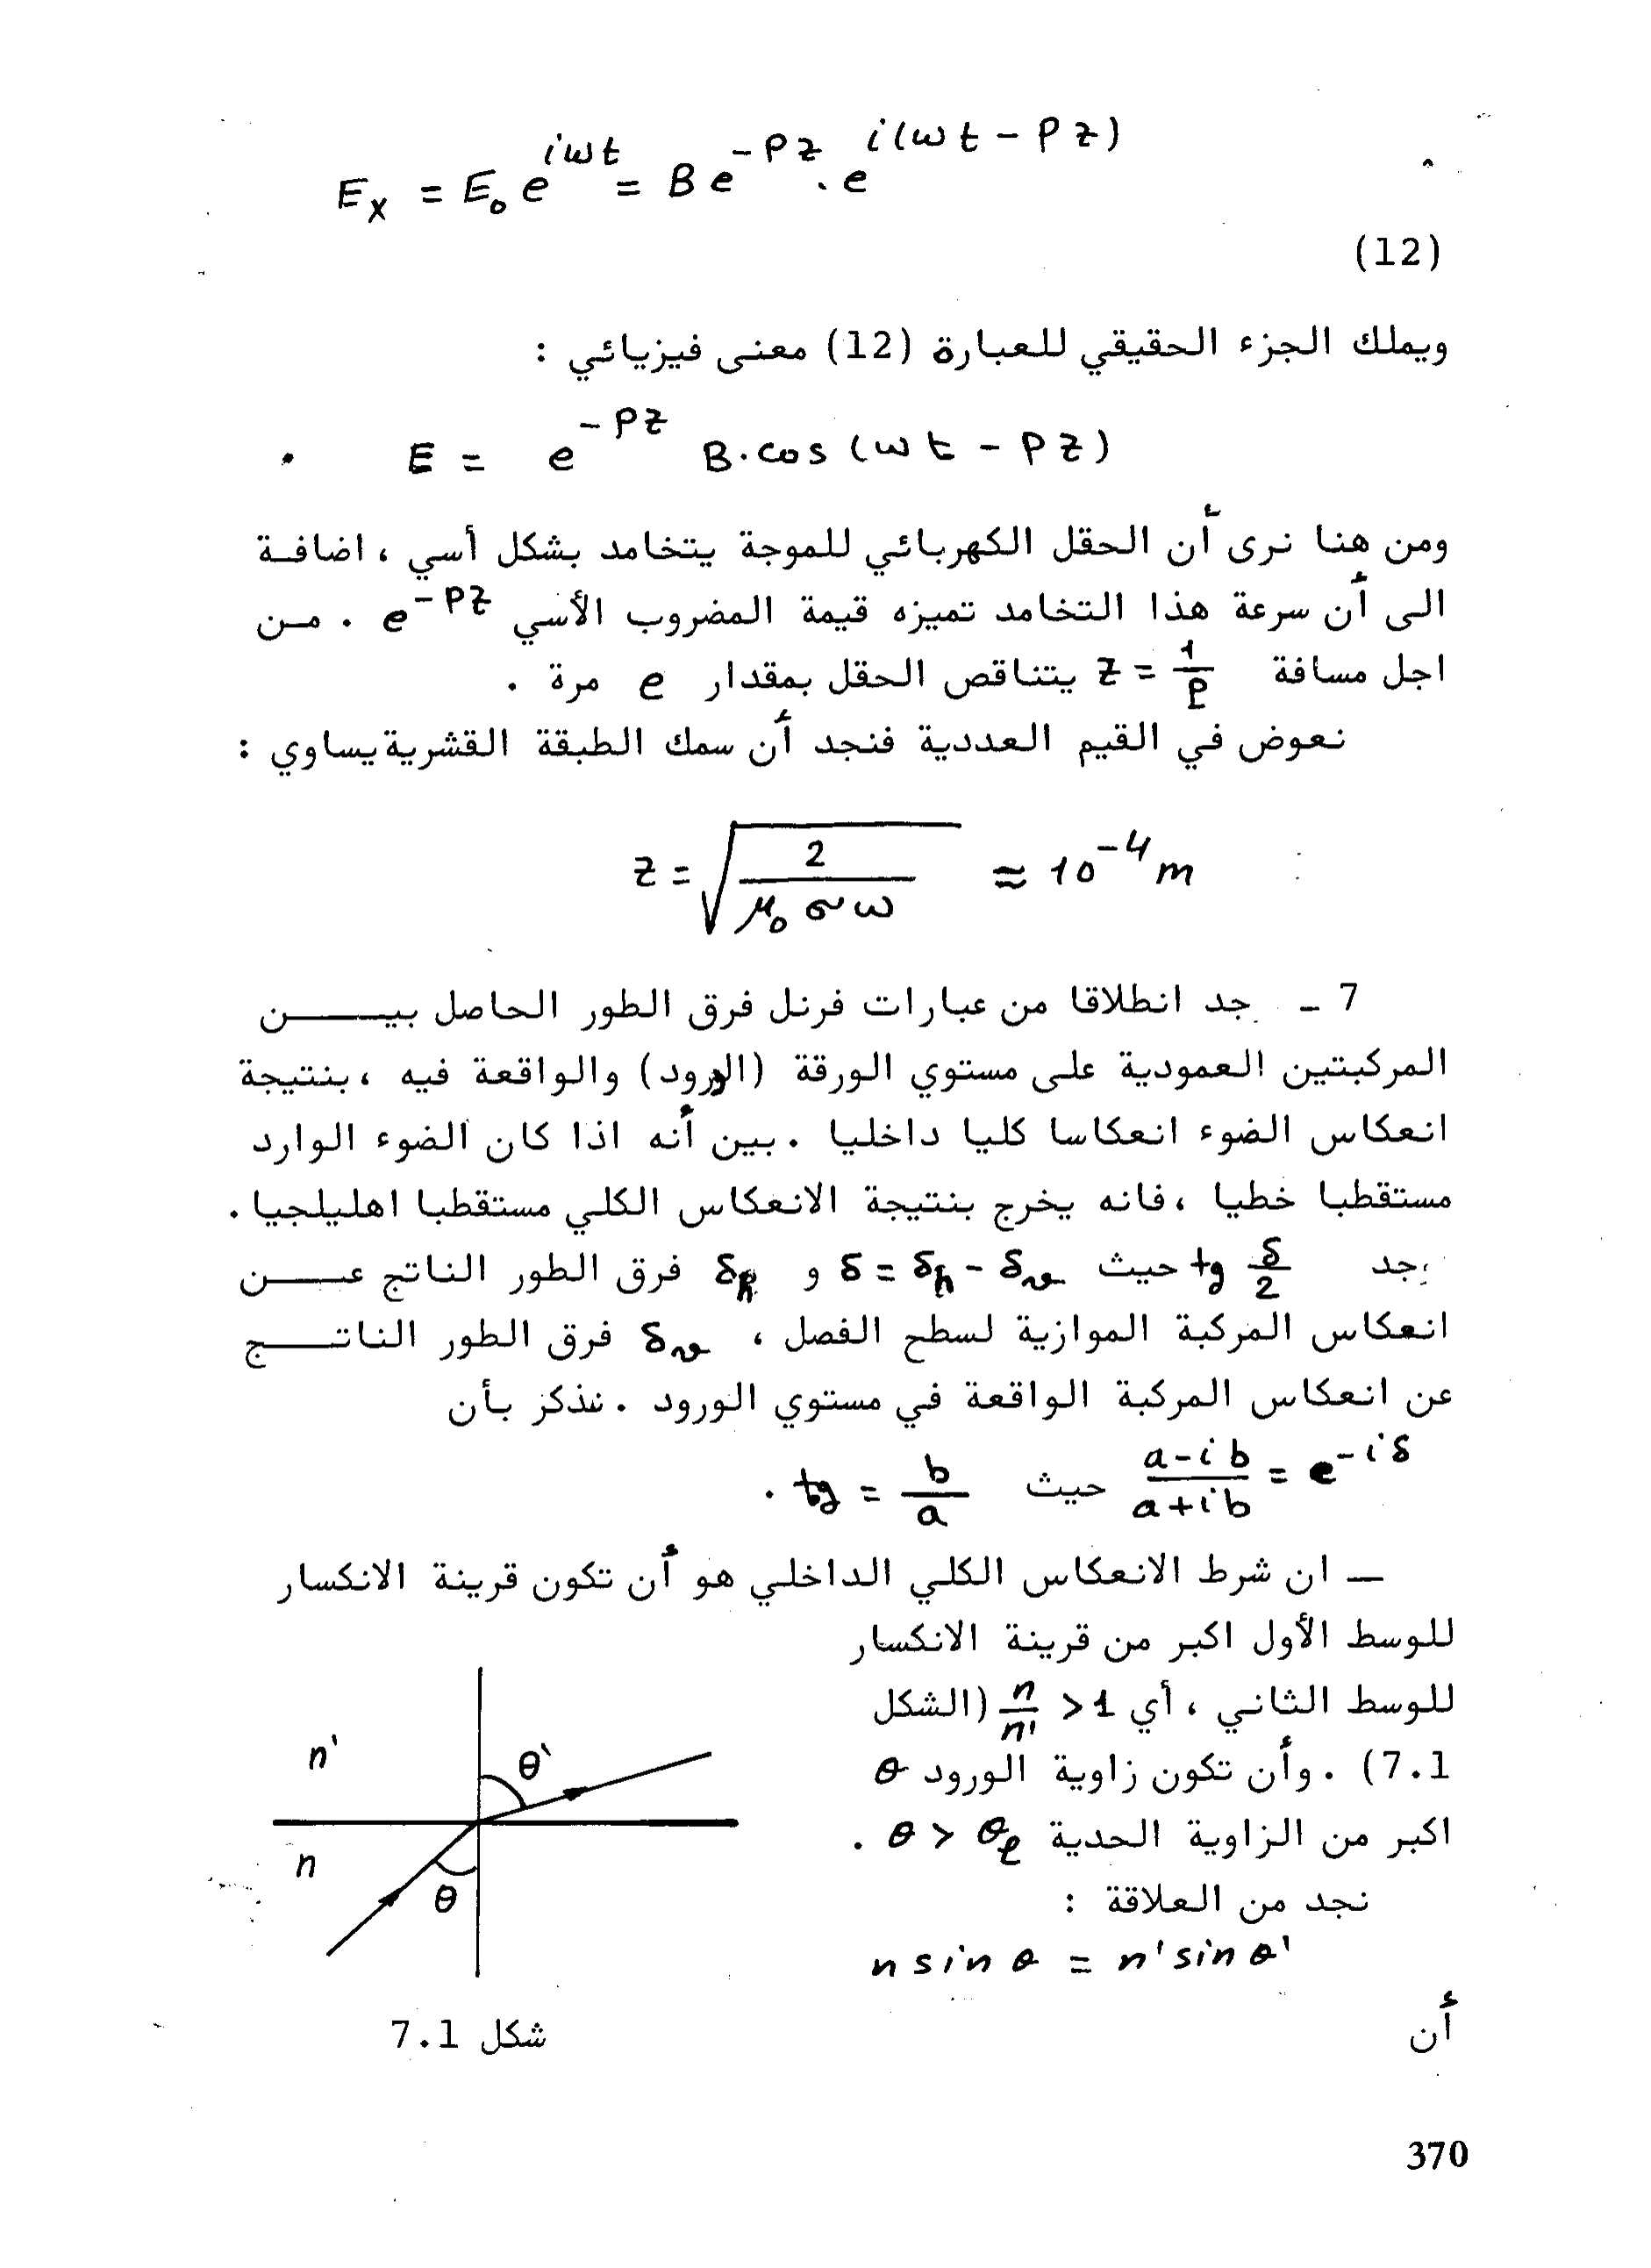 E_x = E_0 e^{iωt} = B e^{-Pz} . e^{i(ωt - Pz)}
(12)
ويملك الجزء الحقيقي للعبارة (12) معنى فيزيائي :
E = e^{-Pz} B.cos (ωt - Pz) .
ومن هنا نرى أن الحقل الكهربائي للموجة يتخامد بشكل أسي ، اضافة
الى أن سرعة هذا التخامد تميزه قيمة المضروب الأسي e^{-Pz} . من
اجل مسافة z = 1/P يتناقص الحقل بمقدار e مرة .
نعوض في القيم العددية فنجد أن سمك الطبقة القشرية يساوي :
z = √(2/(μ_0 σ ω)) ≈ 10^{-4} m
7 - جد انطلاقا من عبارات فرنل فرق الطور الحاصل بين
المركبتين العمودية على مستوي الورقة (الورود) والواقعة فيه ، بنتيجة
انعكاس الضوء انعكاسا كليا داخليا . بين أنه اذا كان الضوء الوارد
مستقطبا خطيا ، فانه يخرج بنتيجة الانعكاس الكلي مستقطبا اهليلجيا .
جد tg δ/2 حيث δ = δ_h - δ_v و δ_h فرق الطور الناتج عن
انعكاس المركبة الموازية لسطح الفصل ، δ_v فرق الطور الناتج
عن انعكاس المركبة الواقعة في مستوي الورود . نذكر بأن
(a-ib)/(a+ib) = e^{-iδ} حيث tg = b/a .
— ان شرط الانعكاس الكلي الداخلي هو أن تكون قرينة الانكسار
للوسط الأول اكبر من قرينة الانكسار
للوسط الثاني ، أي n/n' > 1 (الشكل
7.1) . وأن تكون زاوية الورود θ
اكبر من الزاوية الحدية θ > θ_ℓ .
نجد من العلاقة :
n sin θ = n' sin θ'
أن
n'
θ'
n
θ
شكل 7.1
370